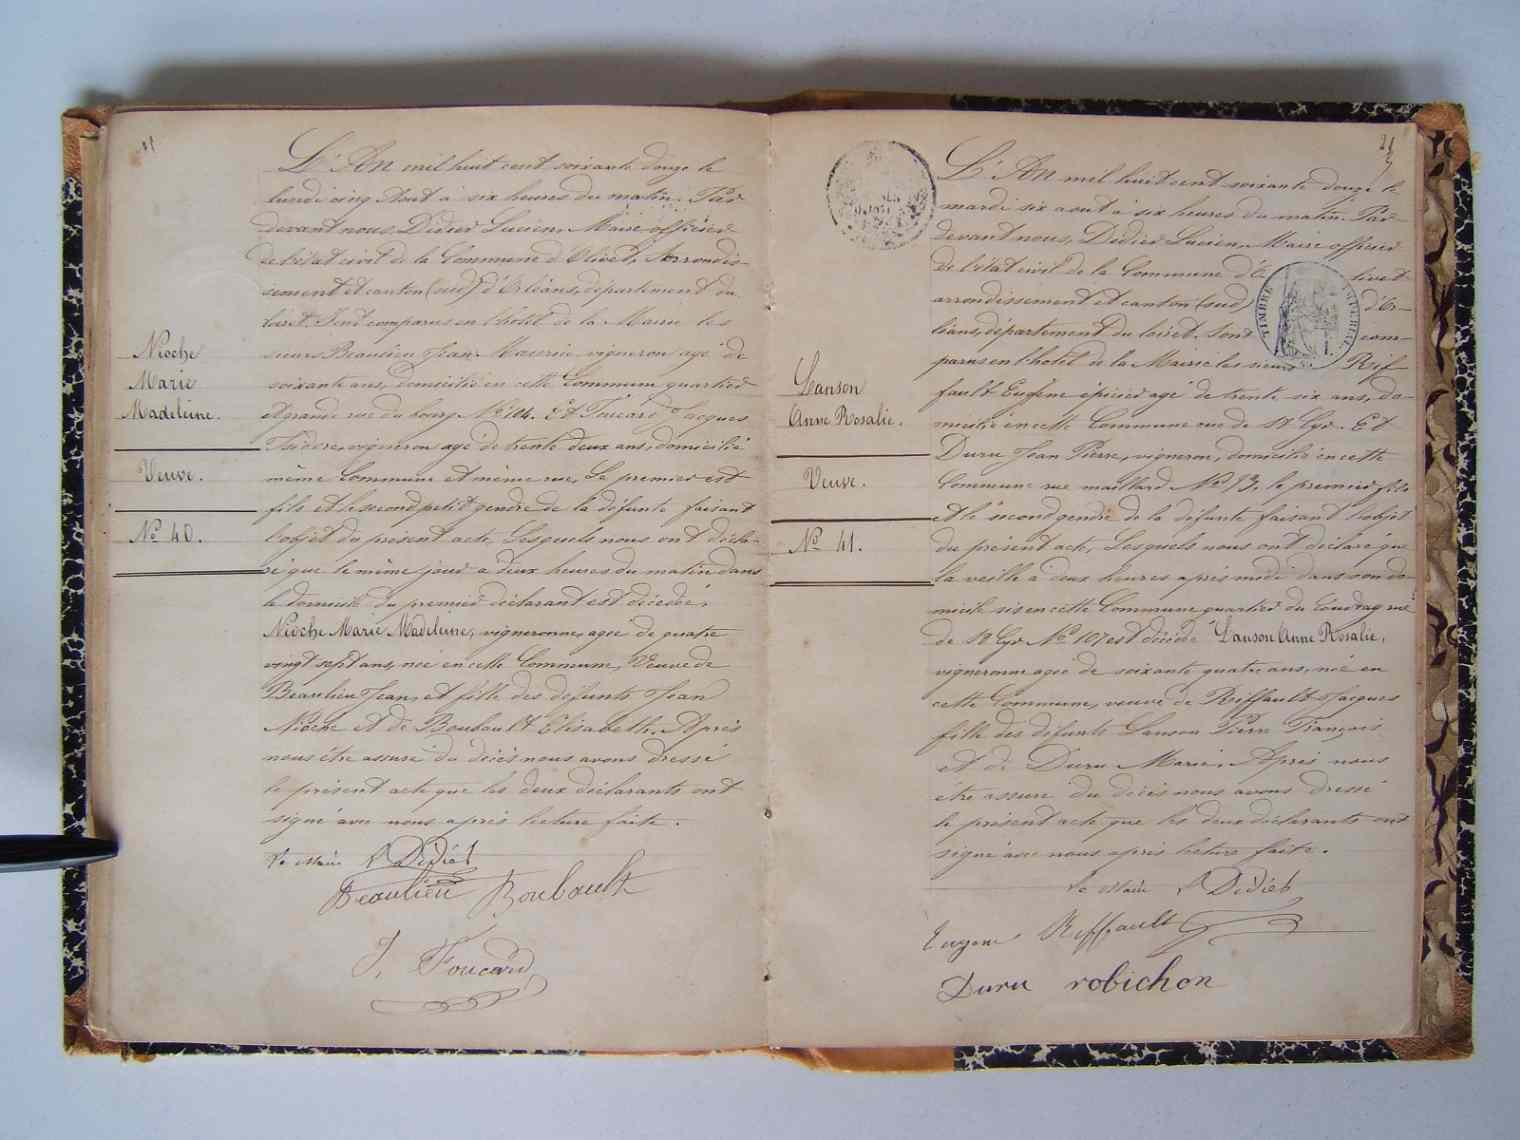 Nioche
Marie
Madeleine.
Veuve.
No 40.
L'An mil huit cent soixante douze le
lundi cinq Aout à six heures du matin. Par
devant nous, Didier Lucien, Maire officier
de l'état civil de la Commune d'Olivet, Arrondis-
sement et canton (sud) d'Orléans, département du
Loiret. Sont comparus en l'hôtel de la Mairie les
sieurs Beaulieu Jean vigneron agé de
soixante ans, domicilié en cette Commune quartier
et grande rue du bourg No 104. Et Foucard Jacques
Isidore, vigneron agé de trente deux ans, domicilié
même Commune et même rue, Le premier est
fils et le second petit gendre de la défunte faisant
l'objet du présent acte, Lesquels nous ont décla-
ré que le même jour à deux heures du matin dans
le domicile du premier déclarant est décedée,
Nioche Marie Madeleine, vigneronne, agée de quatre
vingt sept ans, née en cette Commune, Veuve de
Beaulieu Jean, et fille des défunts Jean
Nioche et de Boubault Elisabeth. Après
nous être assuré du décès nous avons dressé
le présent acte que les deux déclarants ont
signé avec nous après lecture faite.
Le Maire L Didier
Beaulieu Boubault
J. Foucard
21
Lanson
Anne Rosalie.
Veuve.
No 41.
L'An mil huit cent soixante douze le
mardi six aout à six heures du matin. Par-
devant nous, Didier Lucien, Maire officier
de l'état civil de la Commune d'O livet
arrondissement et canton (sud) d'Or-
léans, département du Loiret. Sont com-
parus en l'hôtel de la Mairie les sieurs Rif
fault Eugène épicier agé de trente six ans, do-
micilié en cette Commune rue de St Cyr. Et
Duru Jean Pierre, vigneron, domicilié en cette
Commune rue maillard No 13, le premier fils
et le second gendre de la défunte faisant l'objet
du présent acte, Lesquels nous ont déclaré que
la veille à deux heures après midi dans son do-
micile sis en cette Commune quartier du Coudray rue
de St Cyr No 107 est décédée Lanson Anne Rosalie,
vigneronne agée de soixante quatre ans, née en
cette Commune, veuve de Riffault Jacques
fille des défunts Lanson Pierre François
et de Duru Marie. Après nous
être assuré du décès nous avons dressé
le présent acte que les deux déclarants ont
signé avec nous après lecture faite.
Le Maire L Didier
Eugene Riffault
Duru robichon
TIMBRE IMPERIAL